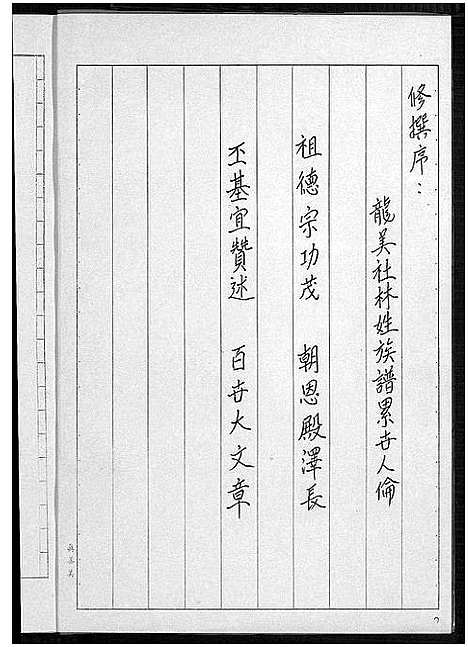 修撰序：
龍美社林姓族譜累世人倫
祖德宗功茂　朝恩殿澤長
丕基宜贊述　百世大文章
2